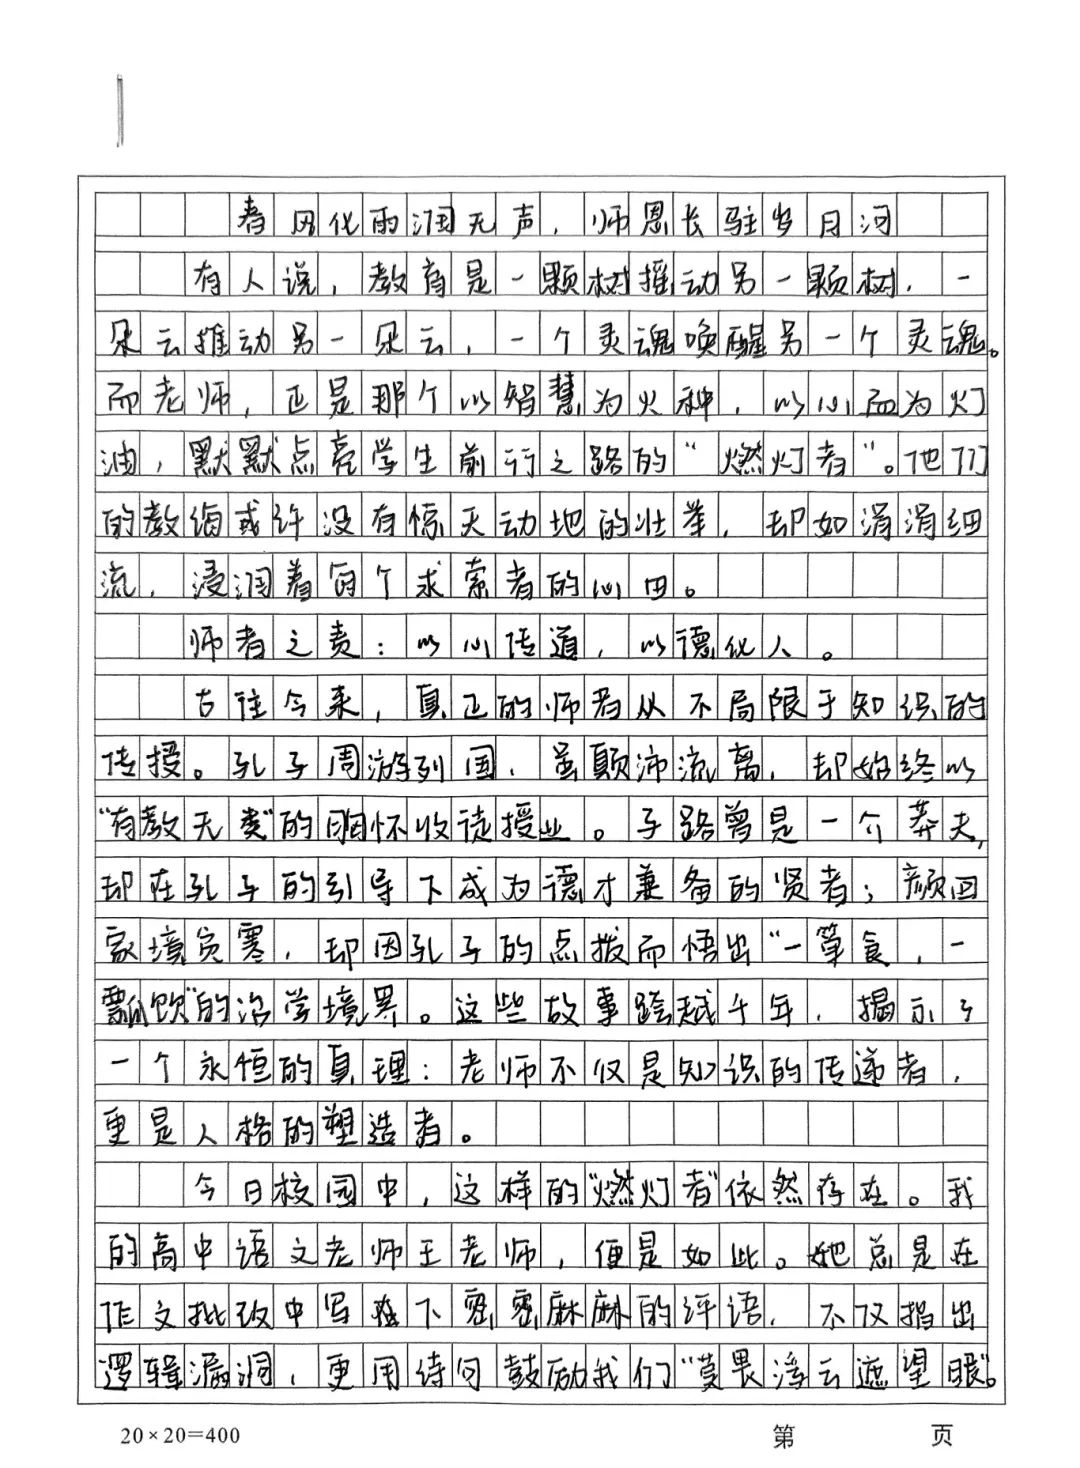 春风化雨润无声，师恩长驻岁月河
有人说，教育是一颗树摇动另一颗树，一
朵云推动另一朵云，一个灵魂唤醒另一个灵魂。
而老师，正是那个以智慧为火种，以心血为灯
油，默默点亮学生前行之路的“燃灯者”。他们
的教诲或许没有惊天动地的壮举，却如涓涓细
流，浸润着每个求索者的心田。
师者之责：以心传道，以德化人。
古往今来，真正的师者从不局限于知识的
传授。孔子周游列国，虽颠沛流离，却始终以
“有教无类”的胸怀收徒授业。子路曾是一个莽夫，
却在孔子的引导下成为德才兼备的贤者；颜回
家境贫寒，却因孔子的点拨而悟出“一箪食，一
瓢饮”的治学境界。这些故事跨越千年，揭示了
一个永恒的真理：老师不仅是知识的传递者，
更是人格的塑造者。
今日校园中，这样的“燃灯者”依然存在。我
的高中语文老师王老师，便是如此。她总是在
作文批改中写下密密麻麻的评语，不仅指出
逻辑漏洞，更用诗句鼓励我们“莫畏浮云遮望眼”。
20×20=400
第 页